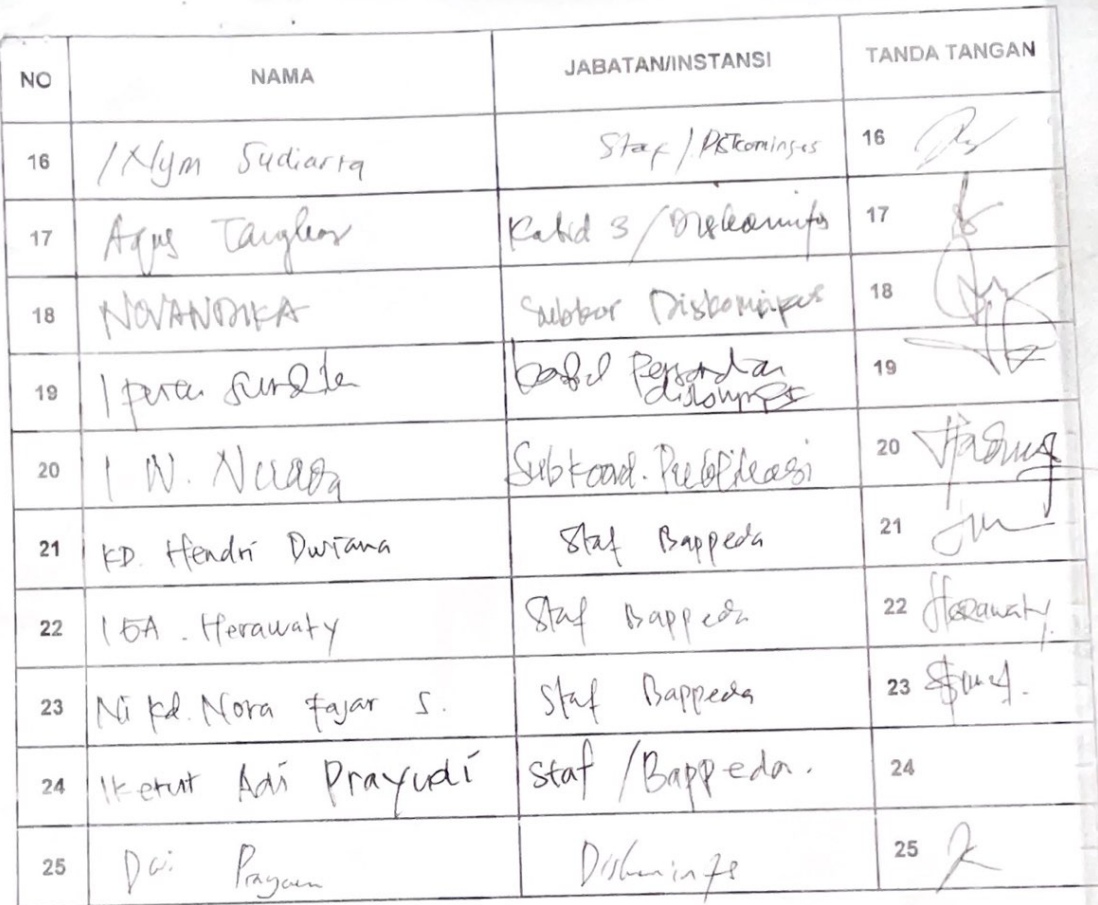 NO NAMA JABATAN/INSTANSI TANDA TANGAN
16 I Nym Sudiarta Staf / Diskominfos 16
17 Agus Kabid 3 / Diskominfo 17
18 NOVANDIKA Subkor Diskominfos 18
19 I 19
20 I W. Subkoord. Publikasi 20
21 KD. Hendri Dwiana Staf Bappeda 21
22 IGA. Herawaty Staf Bappeda 22 Herawaty
23 Ni Kd. Nora Fajar S. Staf Bappeda 23
24 I Ketut Adi Prayudi Staf / Bappeda. 24
25 Diskominfo 25